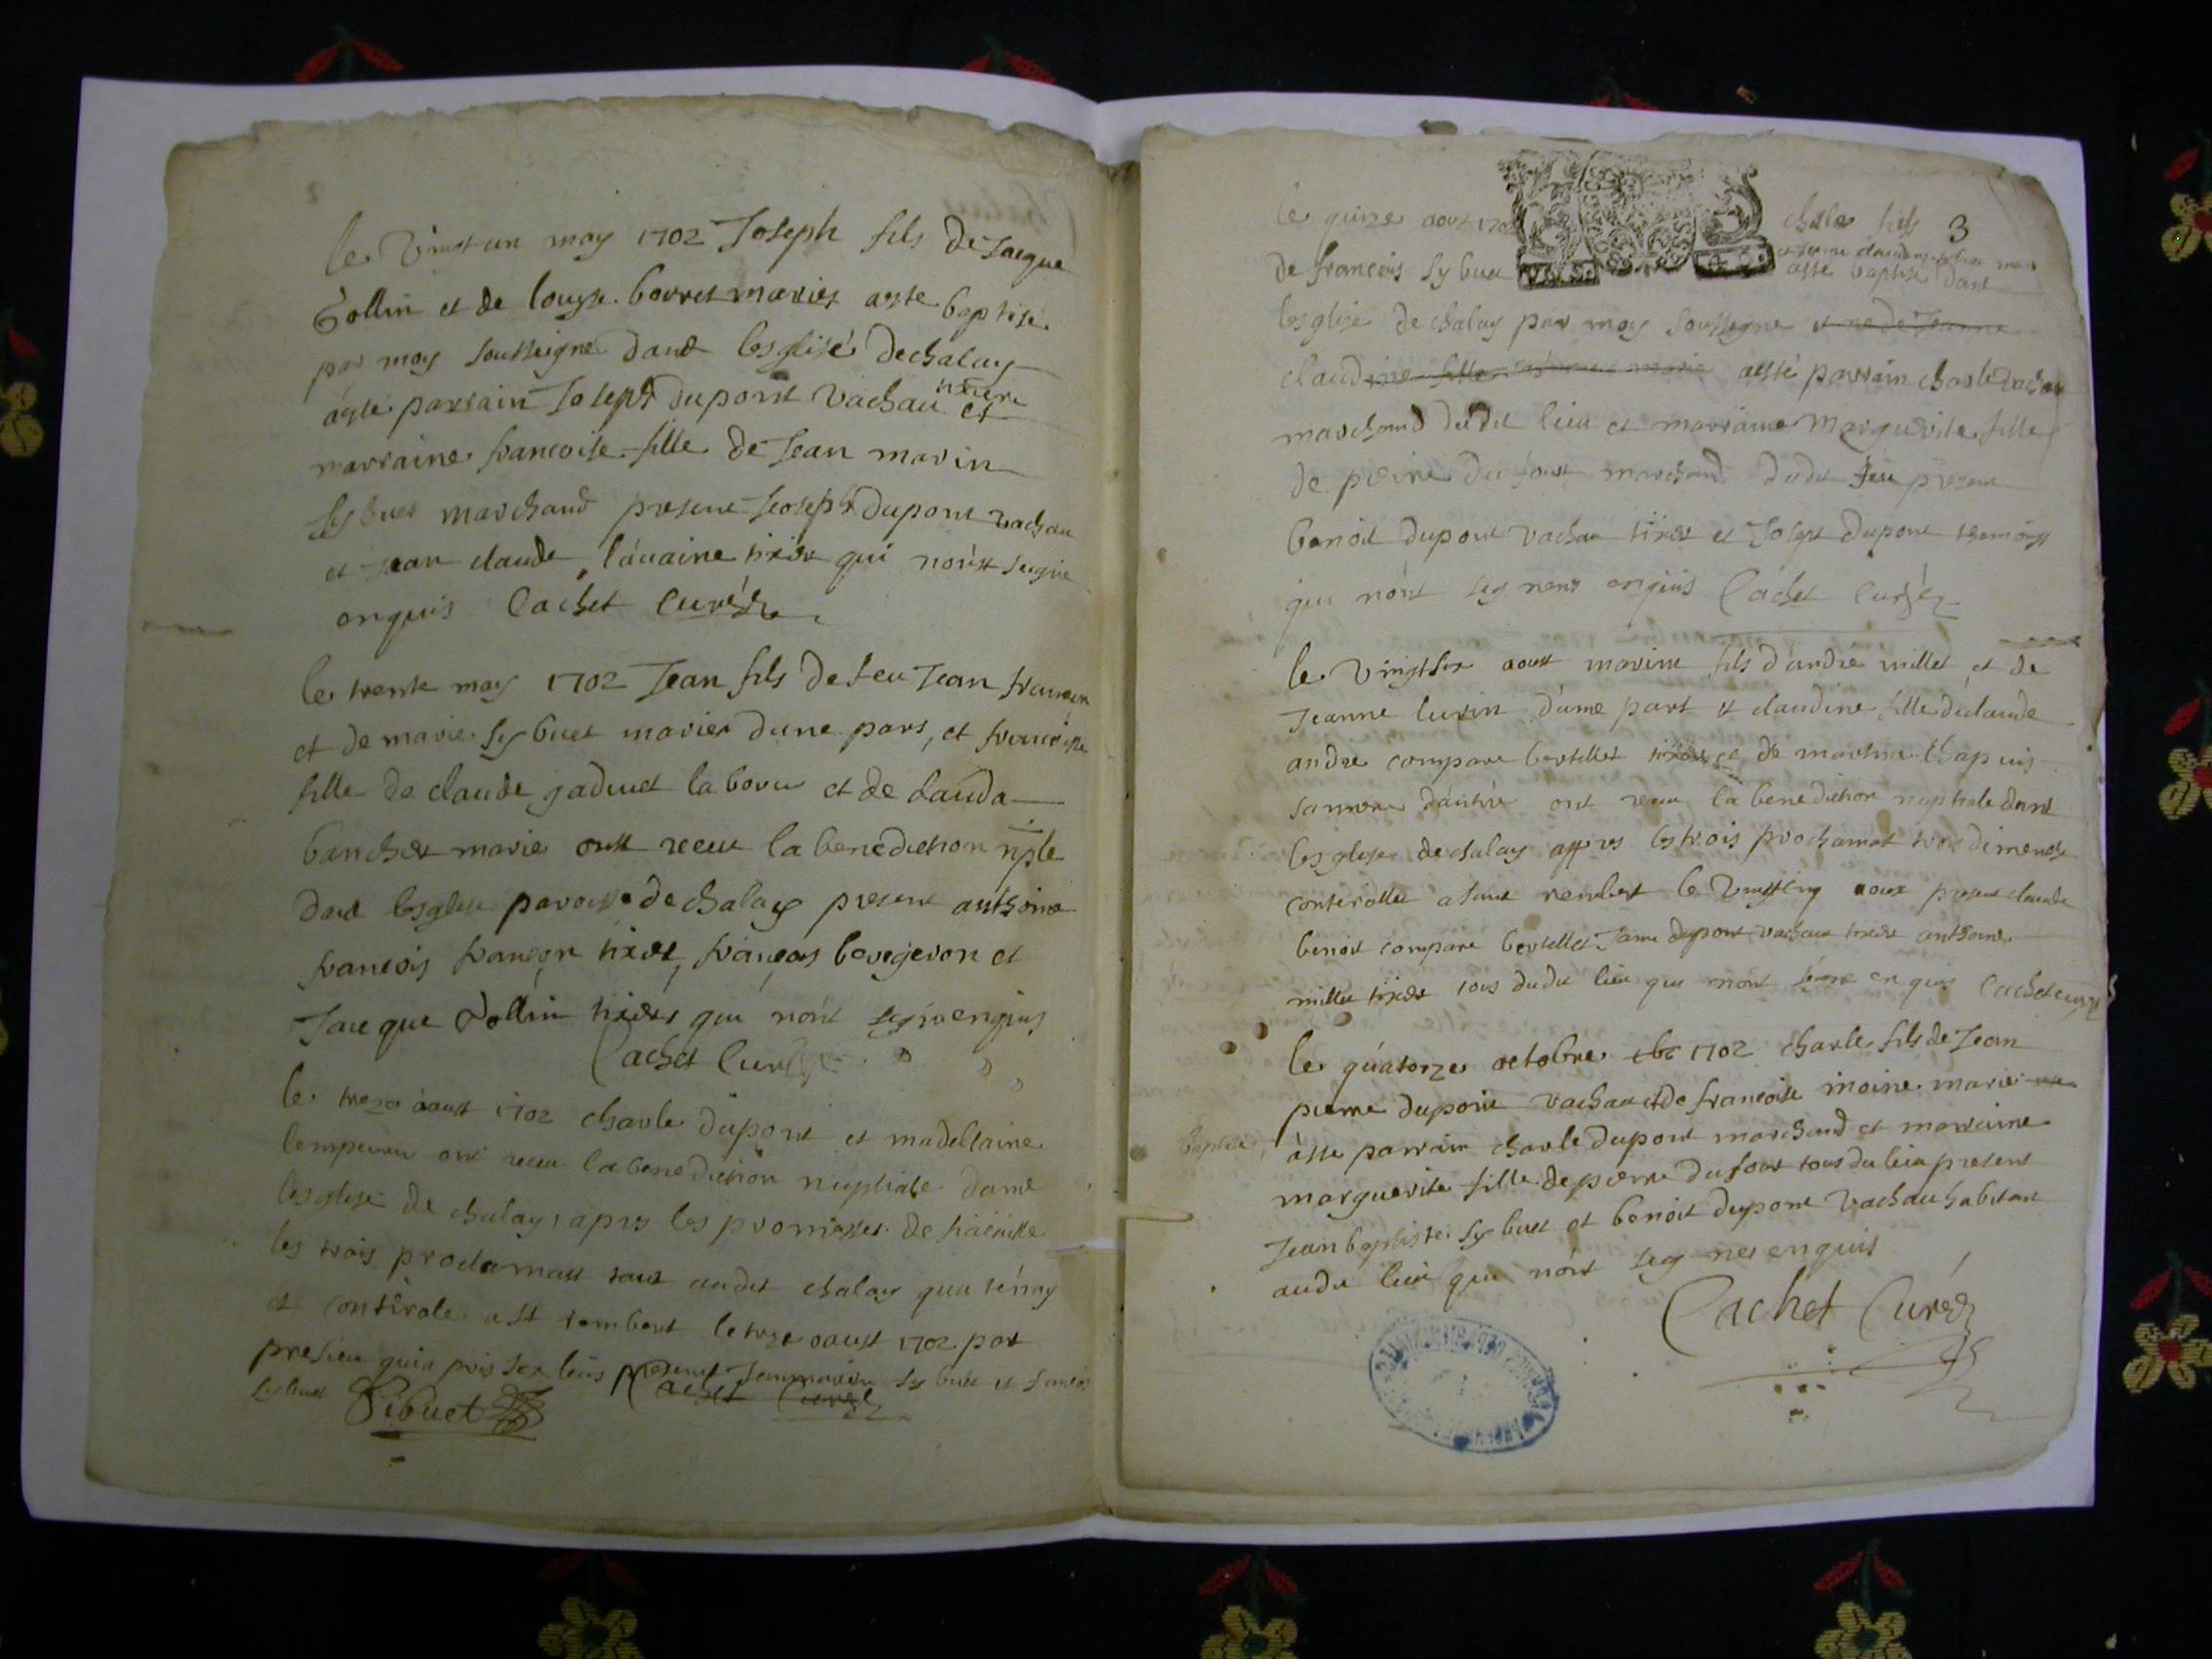 le vinst un may 1702 Joseph fils de Jacque
Gollin et de louyse borret maries aeste baptisé
par moy soussigne dans lesglise de chalay
aesté parrain Joseph dupont vachau et
marraine francoise fille de Jean marin
sybuet marchand present Joseph dupont vachau
et Jean claude tixier qui nont signe
enquis Cachet Curé
le trente may 1702 Jean fils de feu Jean
et de marie sybuet maries dune pars, et francoise
fille de claude gaduet et de clauda
marie ont receu la benediction nple
dans lesglise paroisse de chalay present anthoine
francois tixier, francois bovegeron et
Jacque Gollin tixiers qui nont enquis
Cachet Curé
le treze aoust 1702 charle dupont et madellaine
ont receu la benediction nuptiale dans
lesglise de chalay apres les promesses de
les trois proclamatt audit chalay
et controle a st rembert le treze aoust 1702 par
presieu present Jean marin sybuet et
sybuet Sibuet Cachet Curé
le quinze aoust 1702 fils 3
de francois sybuet aesté baptisé dans
lesglise de chalay par moy soussigne et ne de Jeanne
claudine fille aesté parrain charle vachau
marchand dudit lieu et marraine marguerite fille
de pierre du four marchand dudit lieu present
benoit dupont vachau tixier et Joseph dupont
qui nont enquis Cachet Curé
le vingt six aoust marin fils dandré millet et de
Jeanne lurin dune part et claudine fille de claude
andre compare bertellet tixier et de martine chapuis
dautre ont receu la benediction nuptiale dans
lesglise de chalay appres les trois proclamat trois dimenche
controlle a saint rembert le aoust present claude
benoit compare bertellet dupont vachau tixier anthoine
millet tixier tous dudit lieu qui nont enquis Cachet curé
le quatorze octobre 1702 charle fils de Jean
pierre dupont vachau et de francoise moine marie
baptise, aste parrain charle dupont marchand et marraine
marguerite fille de pierre du four tous du lieu present
Jean baptiste sybuet et benoit dupont vachau habitant
audit lieu qui nont enquis
Cachet Curé